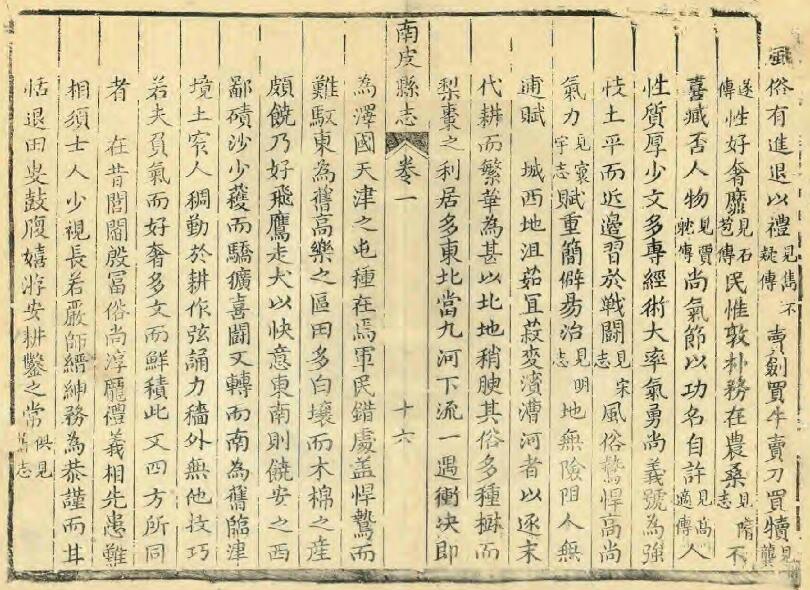 風俗有進退以禮見雋不疑傳賣劍買牛賣刀買犢見龔
遂傳性好奢靡見石苞傳民性敦朴務在農桑見隋志不
喜臧否人物見賈躭傳尚氣節以功名自許見高適傳人
性質厚少文多專經術大率氣勇尚義號為強
忮土平而近邊習於戰鬪見宋志風俗鷙悍高尚
氣力見寰宇志賦重簡僻易治見明志地無險阻人無
逋賦　城西地沮茹宜菽麥濱漕河者以逐末
代耕而繁華為甚以北地稍腴其俗多種樹而
梨棗之利居多東北當九河下流一遇衝決即
南皮縣志　卷一　十六
為澤國天津之屯種在焉軍民錯處盖悍驁而
難馭東為舊高樂之區田多白壤而木棉之產
頗饒乃好飛鷹走犬以快意東南則饒安之西
鄙磧沙少穫而驕獷喜鬪又轉而南為舊臨津
境土窄人稠勤於耕作弦誦力穡外無他技巧
若夫負氣而好奢多文而鮮積此又四方所同
者　在昔閭閻殷冨俗尚淳龐禮義相先患難
相須士人少視長若嚴師縉紳務為恭謹而甘
恬退田叟鼓腹嬉游安耕鑿之常俱見舊志